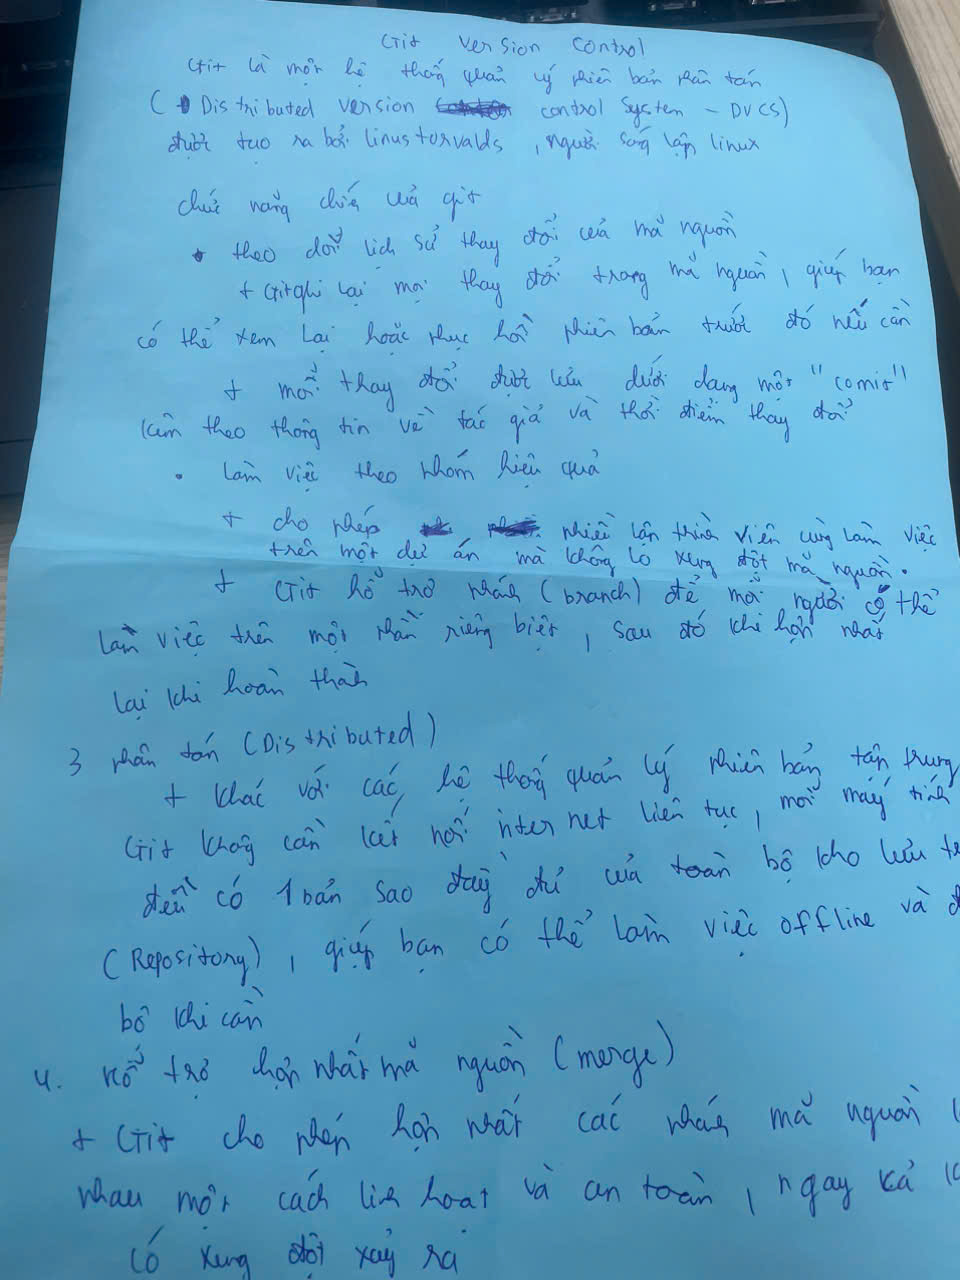 Git version control
Git là một hệ thống quản lý phiên bản phân tán
(Distributed version control System - DVCS)
được tạo ra bởi linus torvalds, người sáng lập linux
chức năng chính của git
theo dõi lịch sử thay đổi của mã nguồn
+ Git ghi lại mọi thay đổi trong mã nguồn, giúp bạn
có thể xem lại hoặc phục hồi phiên bản trước đó nếu cần
+ mỗi thay đổi được lưu dưới dạng một "comit"
kèm theo thông tin về tác giả và thời điểm thay đổi
• Làm việc theo nhóm hiệu quả
+ cho phép nhiều thành viên cùng làm việc
trên một dự án mà không lo xung đột mã nguồn.
+ Git hỗ trợ nhánh (branch) để mỗi người có thể
làm việc trên một phần riêng biệt, sau đó khi hợp nhất
lại khi hoàn thành
3 phân tán (Distributed)
+ khác với các hệ thống quản lý phiên bản tập trung
Git không cần kết nối internet liên tục, mỗi máy tính
đều có 1 bản sao đầy đủ của toàn bộ kho lưu
(Repository), giúp bạn có thể làm việc offline và
bộ khi cần
4. Hỗ trợ hợp nhất mã nguồn (merge)
+ Git cho phép hợp nhất các nhánh mã nguồn
nhau một cách linh hoạt và an toàn, ngay cả
có xung đột xảy ra